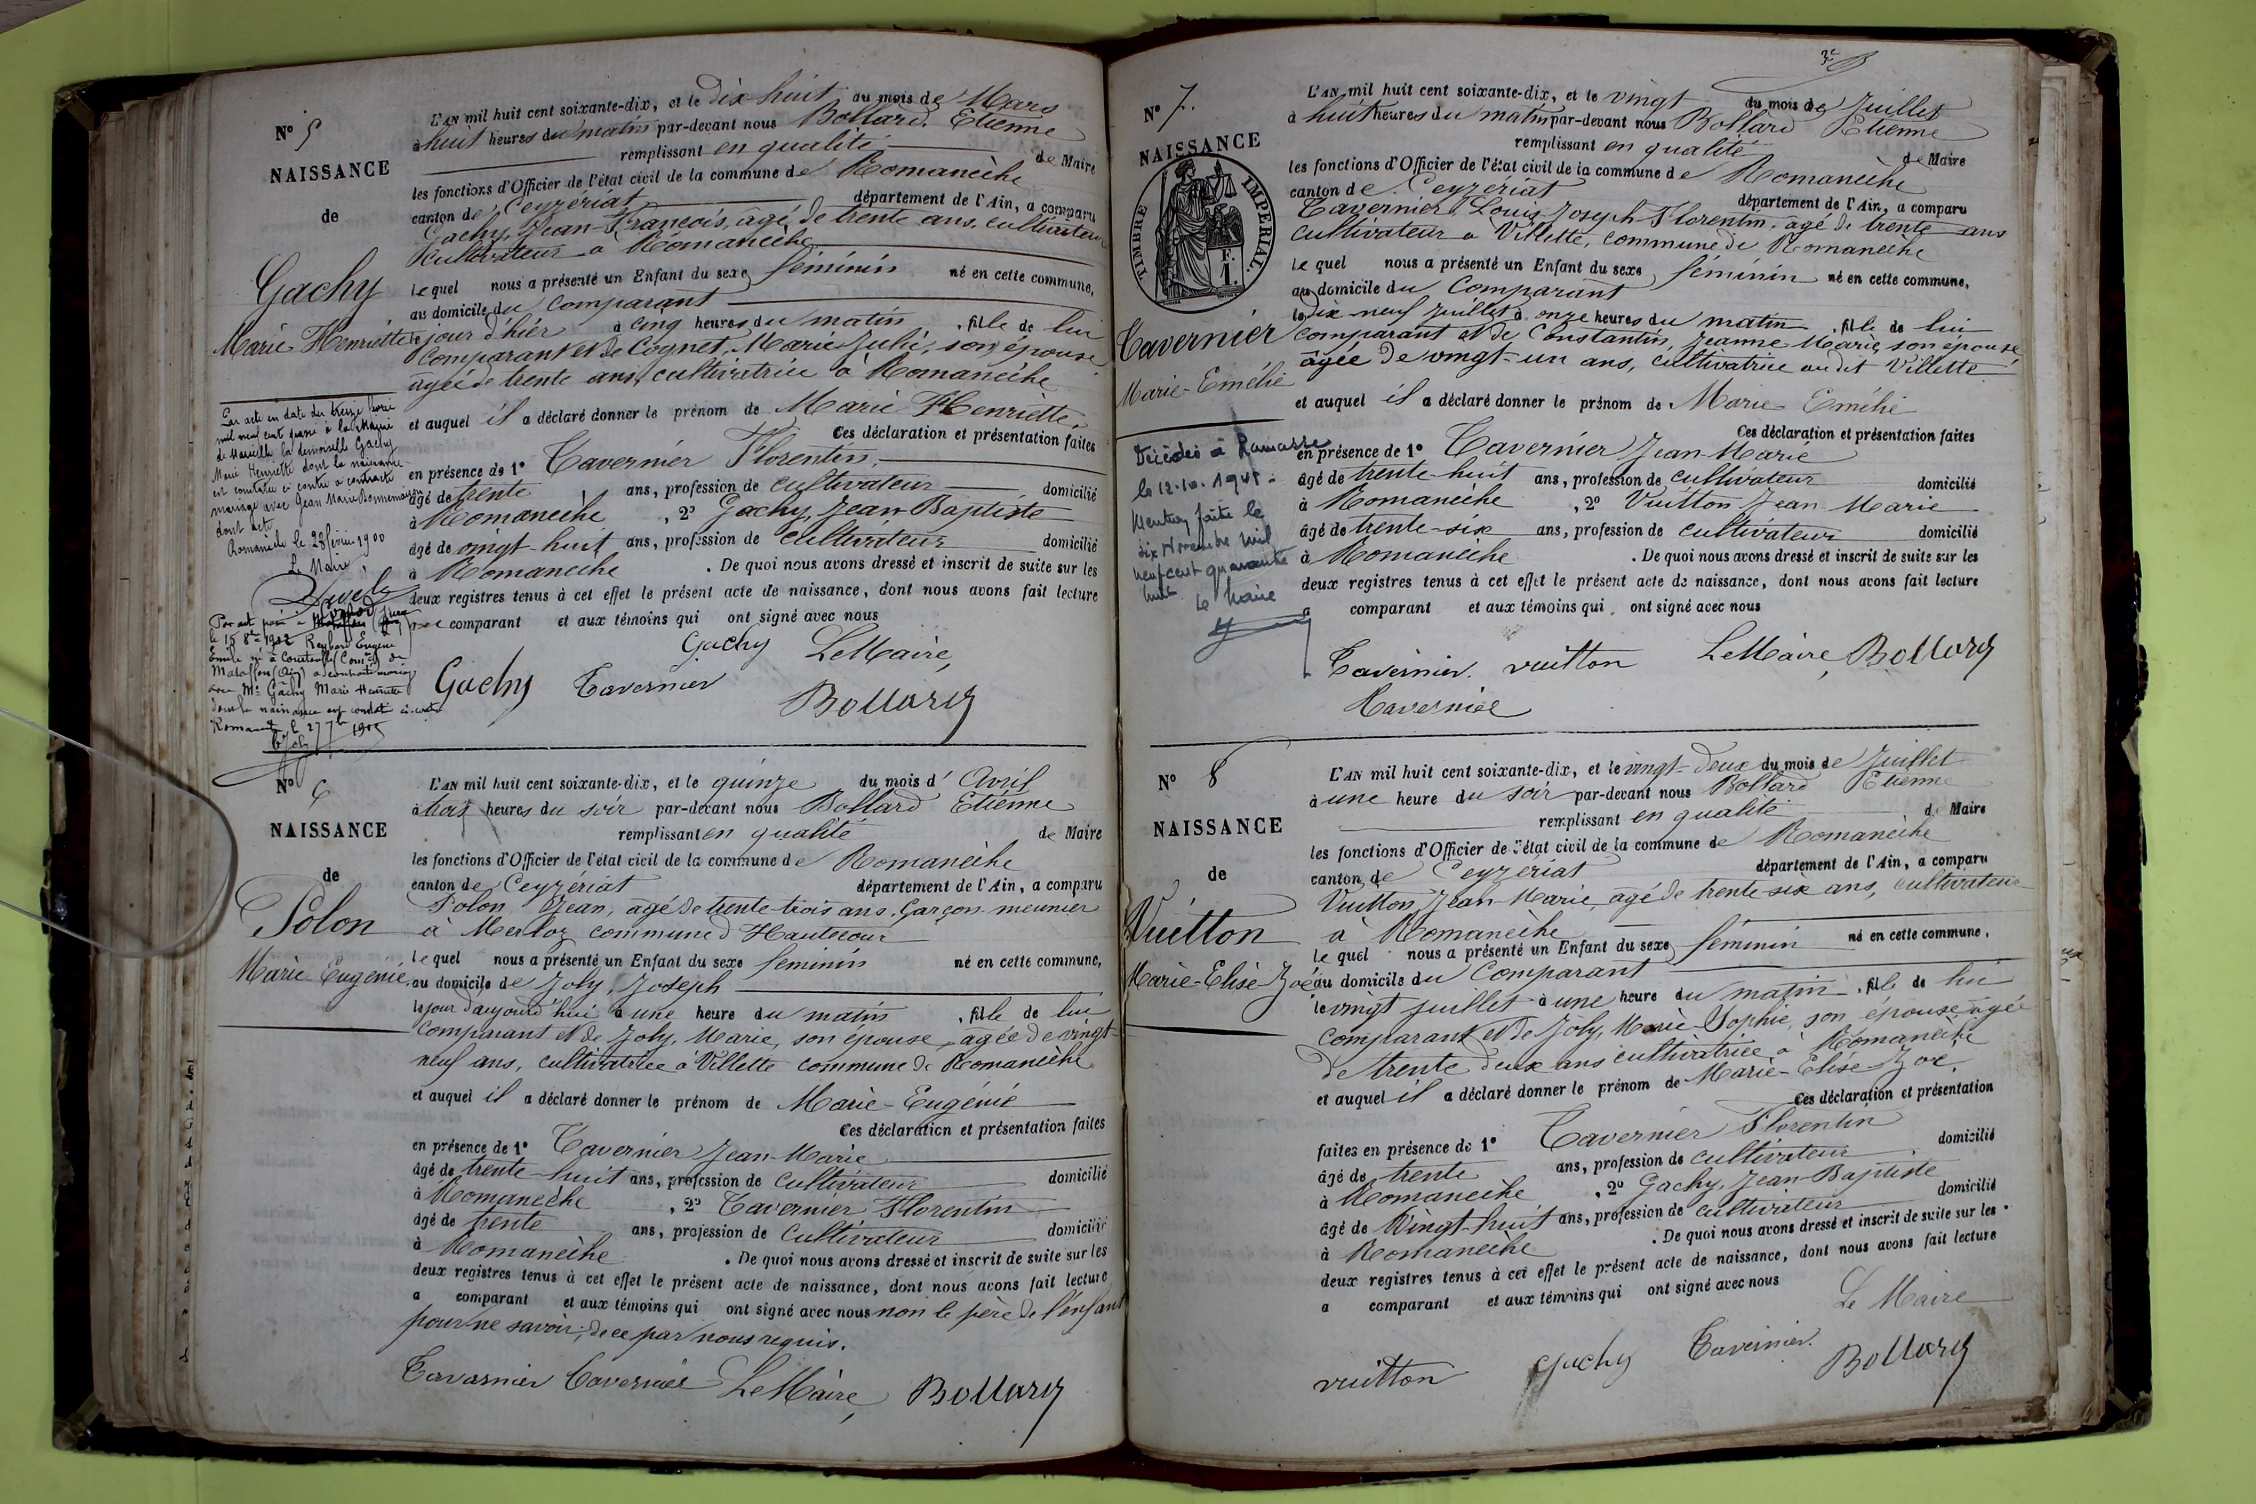 N° 5
NAISSANCE
de
Gachy
Marie Henriette
L'AN mil huit cent soixante-dix, et le dix-huit du mois de Mars
à huit heures du matin par-devant nous Bollard Etienne
remplissant en qualité de Maire
les fonctions d'Officier de l'état civil de la commune de Romanèche
canton de Ceyzériat département de l'Ain, a comparu
Gachy, Jean-François, âgé de trente ans, cultivateur
cultivateur à Romanèche
lequel nous a présenté un Enfant du sexe féminin né en cette commune,
au domicile du comparant
le jour d'hier à cinq heures du matin, fille de lui
comparant et de Cognet, Marie Julie, son épouse
agée de trente ans, cultivatrice à Romanèche
et auquel il a déclaré donner le prénom de Marie Henriette.
Ces déclaration et présentation faites
en présence de 1° Tavernier Florentin,
âgé de trente ans, profession de cultivateur domicilié
à Romanèche, 2° Gachy, Jean-Baptiste
âgé de vingt-huit ans, profession de cultivateur domicilié
à Romanèche. De quoi nous avons dressé et inscrit de suite sur les
deux registres tenus à cet effet le présent acte de naissance, dont nous avons fait lecture
comparant et aux témoins qui ont signé avec nous
Gachy Le Maire,
Gachy Tavernier Bollard
Par acte en date du treize février
mil neuf cent passé à la Mairie
de Marseille la demoiselle Gachy
Marie Henriette dont la naissance
est constatée ci contre a contracté
mariage avec Jean Marie Bonnemaison
dont acte
Romanèche le 28 février 1900
Le Maire,
Par acte passé à
le 15 8bre 1902 Reybard Eugène
Emile né à
a contracté mariage
avec Mle Gachy Marie Henriette
dont la naissance est constatée ci-contre
Romanèche le 27 7bre 1905
N° 6
NAISSANCE
de
Polon
Marie Eugénie
L'AN mil huit cent soixante-dix, et le quinze du mois d'Avril
à trois heures du soir par-devant nous Bollard Etienne
remplissant en qualité de Maire
les fonctions d'Officier de l'état civil de la commune de Romanèche
canton de Ceyzériat département de l'Ain, a comparu
Polon Jean, agé de trente-trois ans, Garçon meunier
à Merloz commune d'Hautecour
lequel nous a présenté un Enfant du sexe féminin né en cette commune,
au domicile de Joly, Joseph
le jour d'aujourd'hui à une heure du matin, fille de lui
comparant et de Joly, Marie, son épouse agée de vingt-
neuf ans, cultivatrice à Villette commune de Romanèche
et auquel il a déclaré donner le prénom de Marie-Eugénie
Ces déclaration et présentation faites
en présence de 1° Tavernier Jean-Marie
âgé de trente-huit ans, profession de cultivateur domicilié
à Romanèche, 2° Tavernier Florentin
âgé de trente ans, profession de cultivateur domicilié
à Romanèche. De quoi nous avons dressé et inscrit de suite sur les
deux registres tenus à cet effet le présent acte de naissance, dont nous avons fait lecture
a comparant et aux témoins qui ont signé avec nous non le père de l'enfant
pour ne savoir, de ce par nous requis.
Tavarnier Tavernier Le Maire, Bollard
N° 7.
NAISSANCE
TIMBRE IMPÉRIAL
1 F.
Tavernier
Marie-Emélie
L'AN mil huit cent soixante-dix, et le vingt du mois de Juillet
à huit heures du matin par-devant nous Bollard Etienne
remplissant en qualité de Maire
les fonctions d'Officier de l'état civil de la commune de Romanèche
canton de Ceyzériat département de l'Ain, a comparu
Tavernier, Louis Joseph Florentin, agé de trente ans
cultivateur à Villette, commune de Romanèche
lequel nous a présenté un Enfant du sexe féminin né en cette commune,
au domicile du comparant
le dix-neuf juillet à onze heures du matin, fille de lui
comparant et de Constantin, Jeanne Marie, son épouse
âgée de vingt-un ans, cultivatrice audit Villette
et auquel il a déclaré donner le prénom de Marie-Emélie
Ces déclaration et présentation faites
en présence de 1° Tavernier Jean-Marie
âgé de trente-huit ans, profession de cultivateur domicilié
à Romanèche, 2° Vuitton Jean Marie
âgé de trente-six ans, profession de cultivateur domicilié
à Romanèche. De quoi nous avons dressé et inscrit de suite sur les
deux registres tenus à cet effet le présent acte de naissance, dont nous avons fait lecture
a comparant et aux témoins qui ont signé avec nous
Tavernier. vuitton Le Maire, Bollard
Tavernier
Décédée à Ramasse
le 12.10.1948
Mention faite le
six Novembre mil
neuf cent quarante
huit Le Maire
N° 8
NAISSANCE
de
Vuitton
Marie-Elise Zoé
L'AN mil huit cent soixante-dix, et le vingt-deux du mois de Juillet
à une heure du soir par-devant nous Bollard Etienne
remplissant en qualité de Maire
les fonctions d'Officier de l'état civil de la commune de Romanèche
canton de Ceyzériat département de l'Ain, a comparu
Vuitton, Jean-Marie, agé de trente-six ans, cultivateur
à Romanèche
lequel nous a présenté un Enfant du sexe féminin né en cette commune,
au domicile du comparant
le vingt juillet à une heure du matin, fille de lui
comparant et de Joly, Marie-Sophie, son épouse agée
de trente deux ans cultivatrice à Romanèche
et auquel il a déclaré donner le prénom de Marie-Elise-Zoé.
Ces déclaration et présentation
faites en présence de 1° Tavernier Florentin
âgé de trente ans, profession de cultivateur domicilié
à Romanèche, 2° Gachy, Jean-Baptiste
âgé de vingt-huit ans, profession de cultivateur domicilié
à Romanèche. De quoi nous avons dressé et inscrit de suite sur les
deux registres tenus à cet effet le présent acte de naissance, dont nous avons fait lecture
a comparant et aux témoins qui ont signé avec nous
Le Maire
vuitton Gachy Tavernier. Bollard